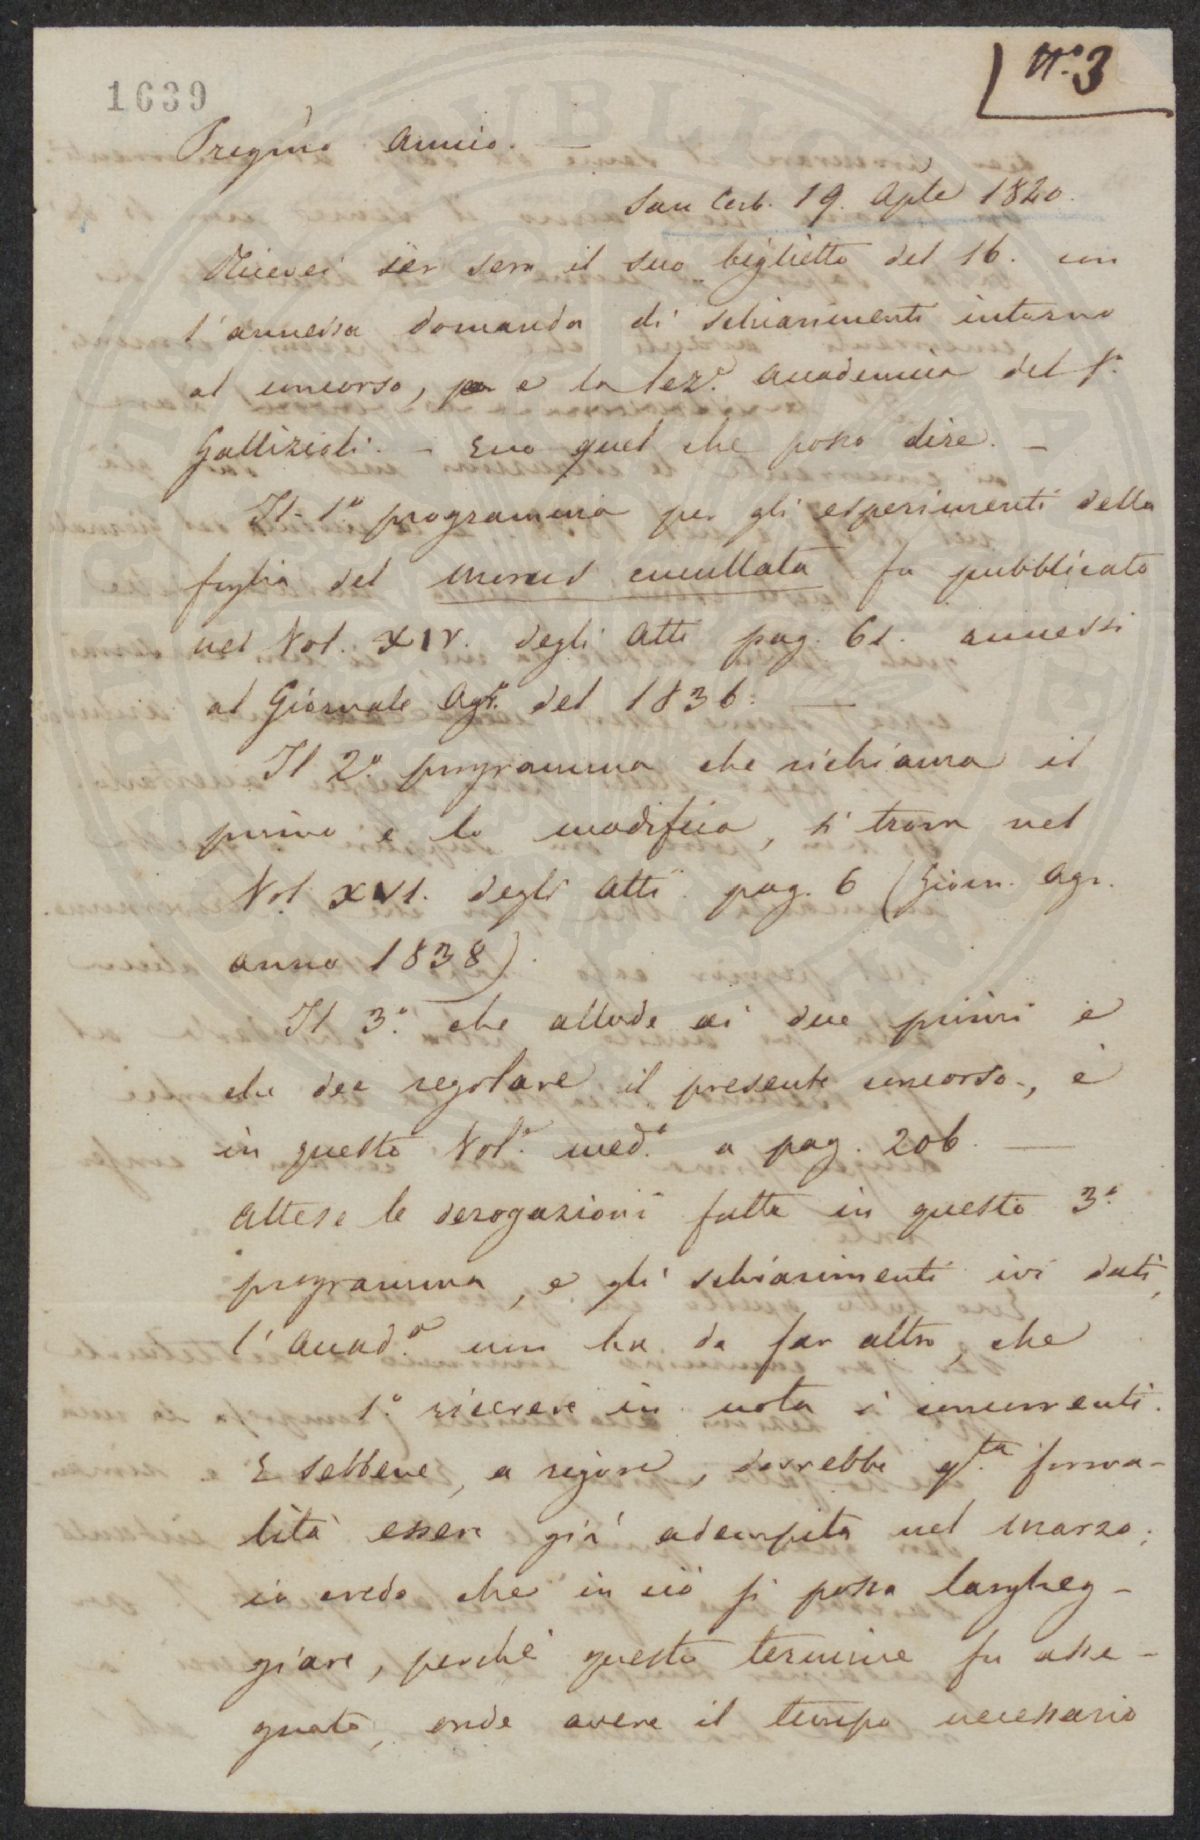 1639
N.° 3
Pregmo Amico. —
San Cerb. 19. Aple 1820.
Ricevei ier sera il suo biglietto del 16. con
l'annessa domanda di schiarimenti intorno
al concorso, e la lez.e Accademica del S.r
Gallizioli. — Ecco quel che posso dire. —
Il 1.° programma per gli esperimenti della
foglia del morus cucullata fu pubblicato
nel Vol. XIV. degli Atti pag. 61. annessi
al Giornale Agr.° del 1836: —
Il 2.° programma che richiama il
primo e lo modifica, si trova nel
Vol. XVI. degli Atti pag. 6 (Giorn. Agr.
anno 1838).
Il 3.° che allude ai due primi e
che dee regolare il presente concorso, è
in questo Vol.e med.° a pag. 206. —
Attese le derogazioni fatte in questo 3.°
programma, e gli schiarimenti ivi dati,
l'Accad.a non ha da far altro, che
1.° ricevere in nota i concorrenti.
E sebbene, a rigore, dovrebbe q.ta forma-
lità essere già adempita nel marzo;
io credo che in ciò si possa largheg-
giare, perchè questo termine fu asse-
gnato, onde avere il tempo necessario